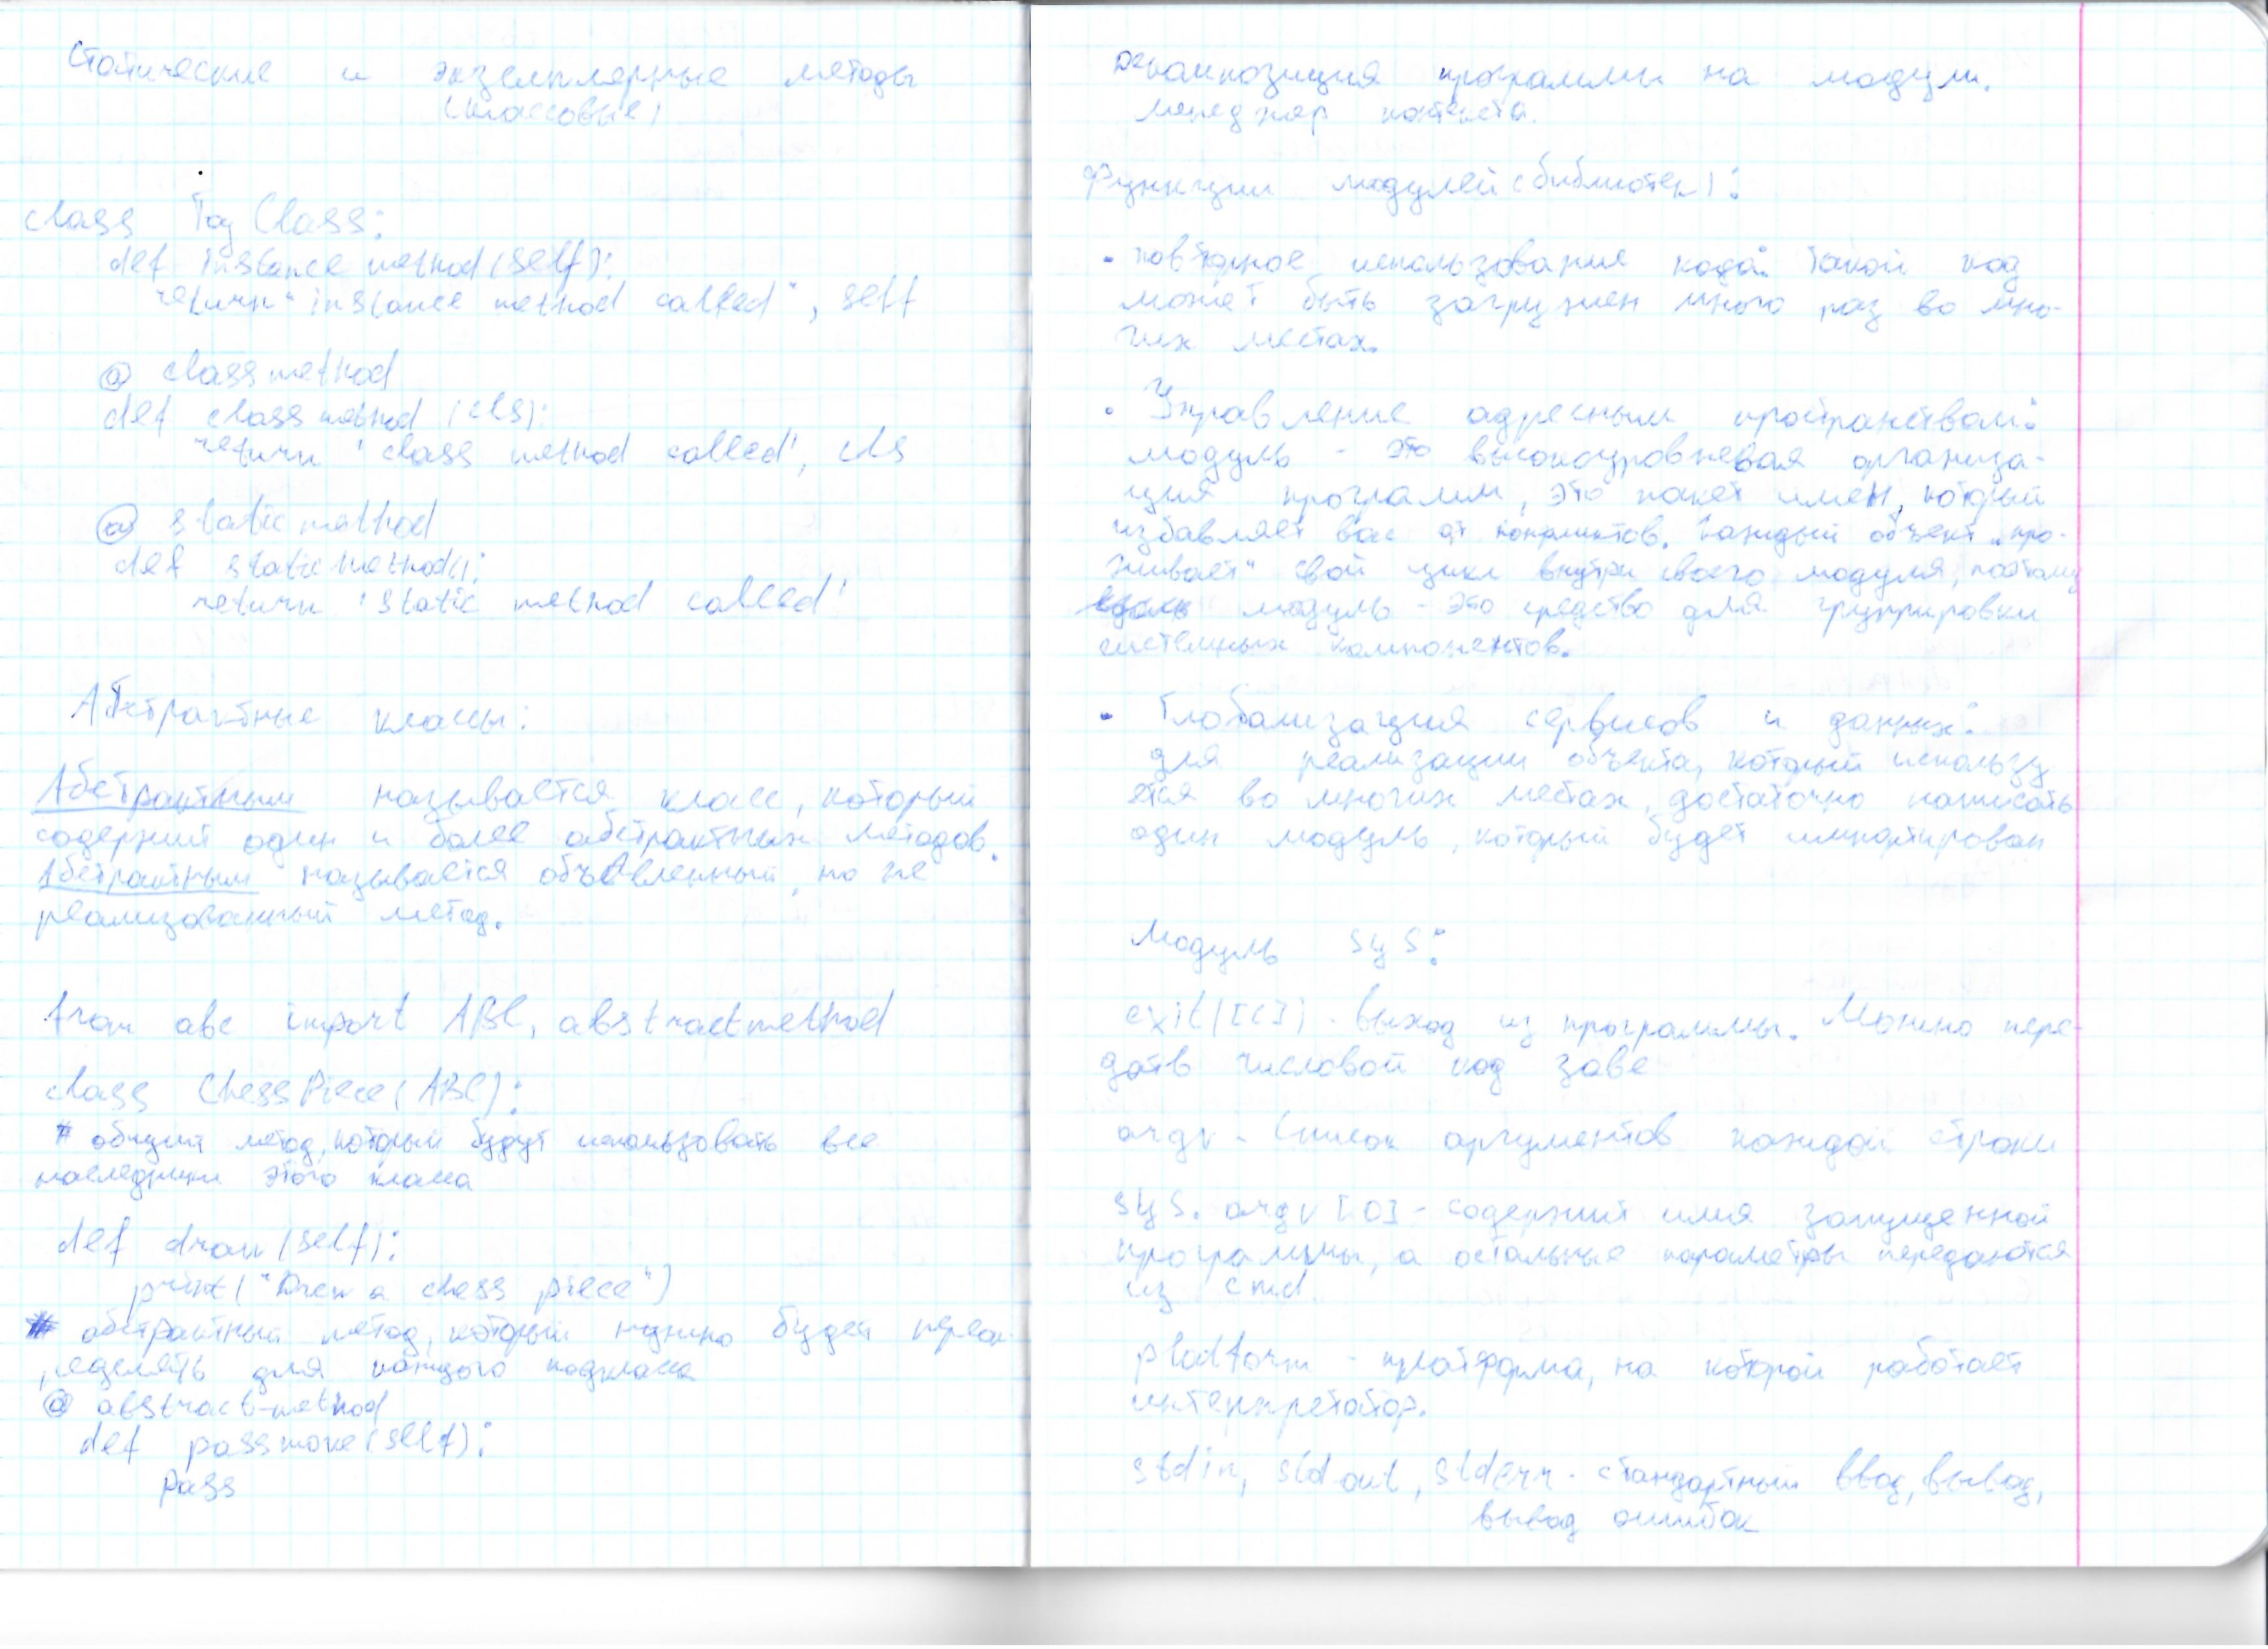 Статические и экземплярные методы
(классовые)
class ToyClass:
def instancemethod(self):
return "instance method called", self
@ classmethod
def classmethod (cls):
return 'class method called', cls
@ staticmethod
def staticmethod():
return 'static method called'
Абстрактные классы:
Абстрактным называется класс, который
содержит один и более абстрактных методов.
Абстрактным называется объявленный, но не
реализованный метод.
from abc import ABC, abstractmethod
class ChessPiece(ABC):
# общий метод, который будут использовать все
наследники этого класса
def draw(self):
print("Drew a chess piece")
# абстрактный метод, который нужно будет переоп-
ределять для каждого подкласса
@ abstract-method
def passmove(self):
pass
Декомпозиция программы на модули.
менеджер контекста.
Функции модулей (библиотек):
• повторное использование кода: такой код
может быть загружен много раз во мно-
гих местах.
• Управление адресным пространством:
модуль - это высокоуровневая организа-
ция программ, это пакет имен, который
избавляет вас от конфликтов. Каждый объект "про-
живает" свой цикл внутри своего модуля, поэтому
модуль - это средство для группировки
системных компонентов.
• Глобализация сервисов и данных:
для реализации объекта, который использу
ется во многих местах, достаточно написать
один модуль, который будет импортирован
Модуль sys:
exit([c]) - выход из программы. Можно пере-
дать числовой код заве
argv - список аргументов каждой строки
sys. argv [0] - содержит имя запущенной
программы, а остальные параметры передаются
из cmd.
platform - платформа, на которой работает
интерпретатор.
stdin, stdout, stderr - стандартный ввод, вывод,
вывод ошибок